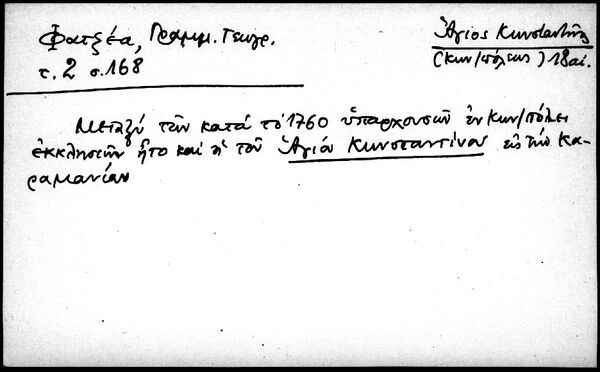 Φατζέα, Γραμμ. Γεωγρ.
τ. 2 σ. 168
Ἅγιος Κωνσταντῖνος
(Κων/πόλεως) 18 αἰ.
Μεταξὺ τῶν κατὰ τὸ 1760 ὑπαρχουσῶν ἐν Κων/πόλει
ἐκκλησιῶν ἦτο καὶ ἡ τοῦ Ἁγίου Κωνσταντίνου εἰς τὴν Κα-
ραμανίαν